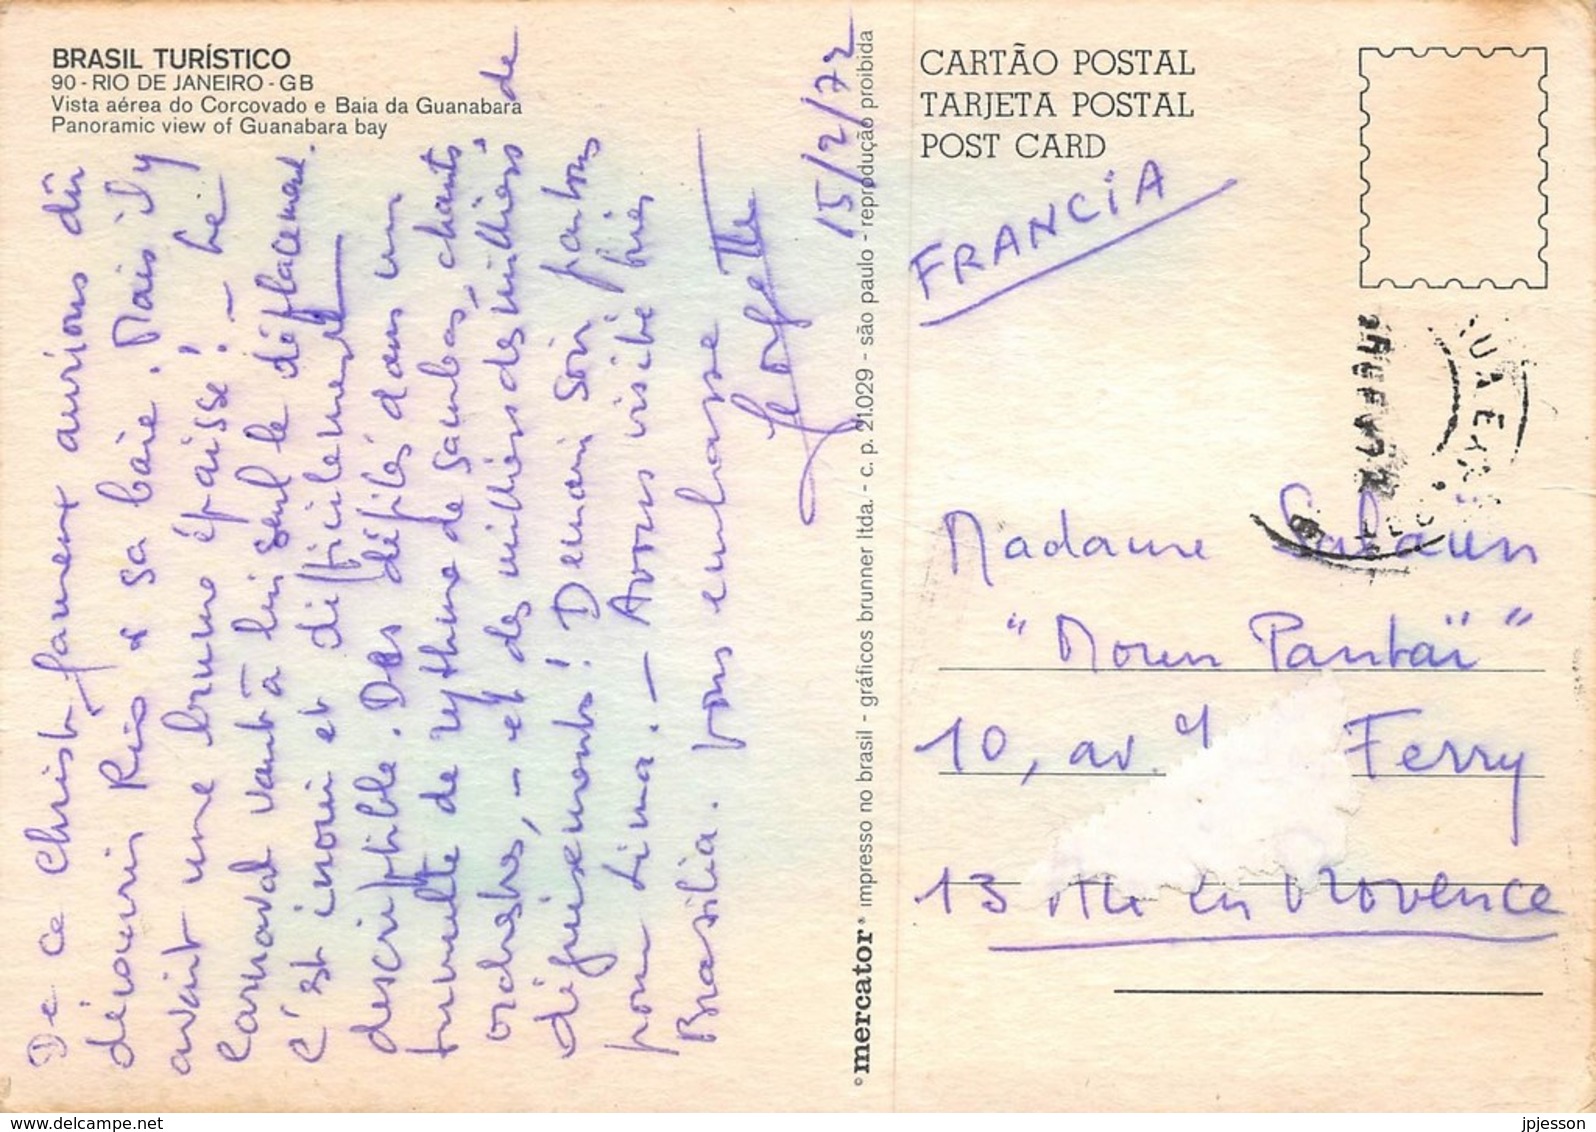 BRASIL TURÍSTICO
90 - RIO DE JANEIRO - GB
Vista aérea do Corcovado e Baia da Guanabara
Panoramic view of Guanabara bay
15/2/72
De ce Christ fameux aurions dû
découvrir Rio & sa baie. Mais il y
avait une brume épaisse! - Le
Carnaval vaut à lui seul le déplacement.
C'est inoui et difficilement
descriptible. Des défilés dans un
tumulte de rythme de sambas, chants
orchestres, - et des milliers de milliers de
déguisements! Demain soir partons
pour Lima. - Avons visité hier
Brasilia. vous embrasse
mercator impresso no brasil - gráficos brunner ltda. - c. p. 21.029 - são paulo - reprodução proibida
CARTÃO POSTAL
TARJETA POSTAL
POST CARD
FRANCIA
Madame Salaün
"Moren Pantaï"
10, av. J Ferry
13 Aix en Provence
www.delcampe.net
jpjesson